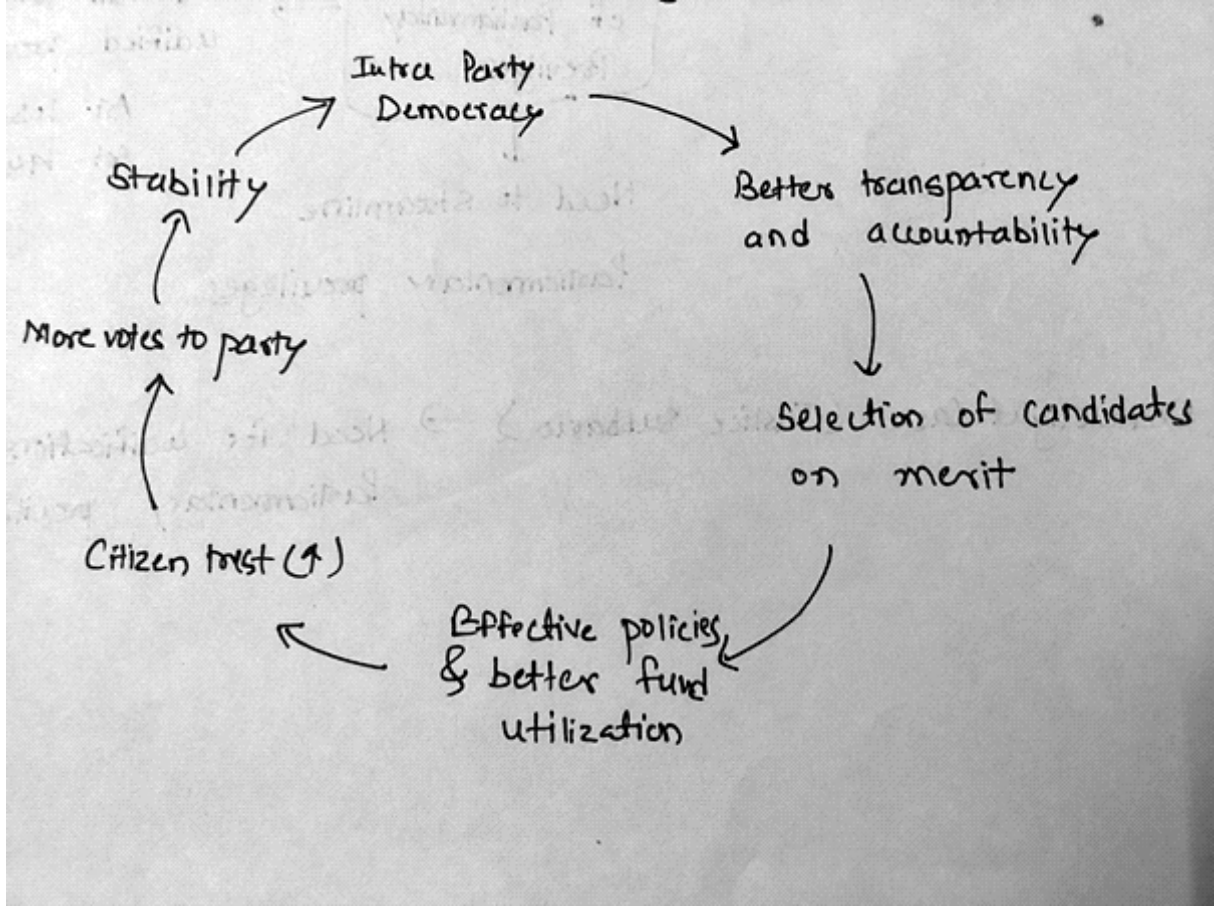 Intra Party
Democracy
Better transparency
and accountability
Selection of candidates
on merit
Effective policies,
& better fund
utilization
Citizen trust (↑)
More votes to party
Stability